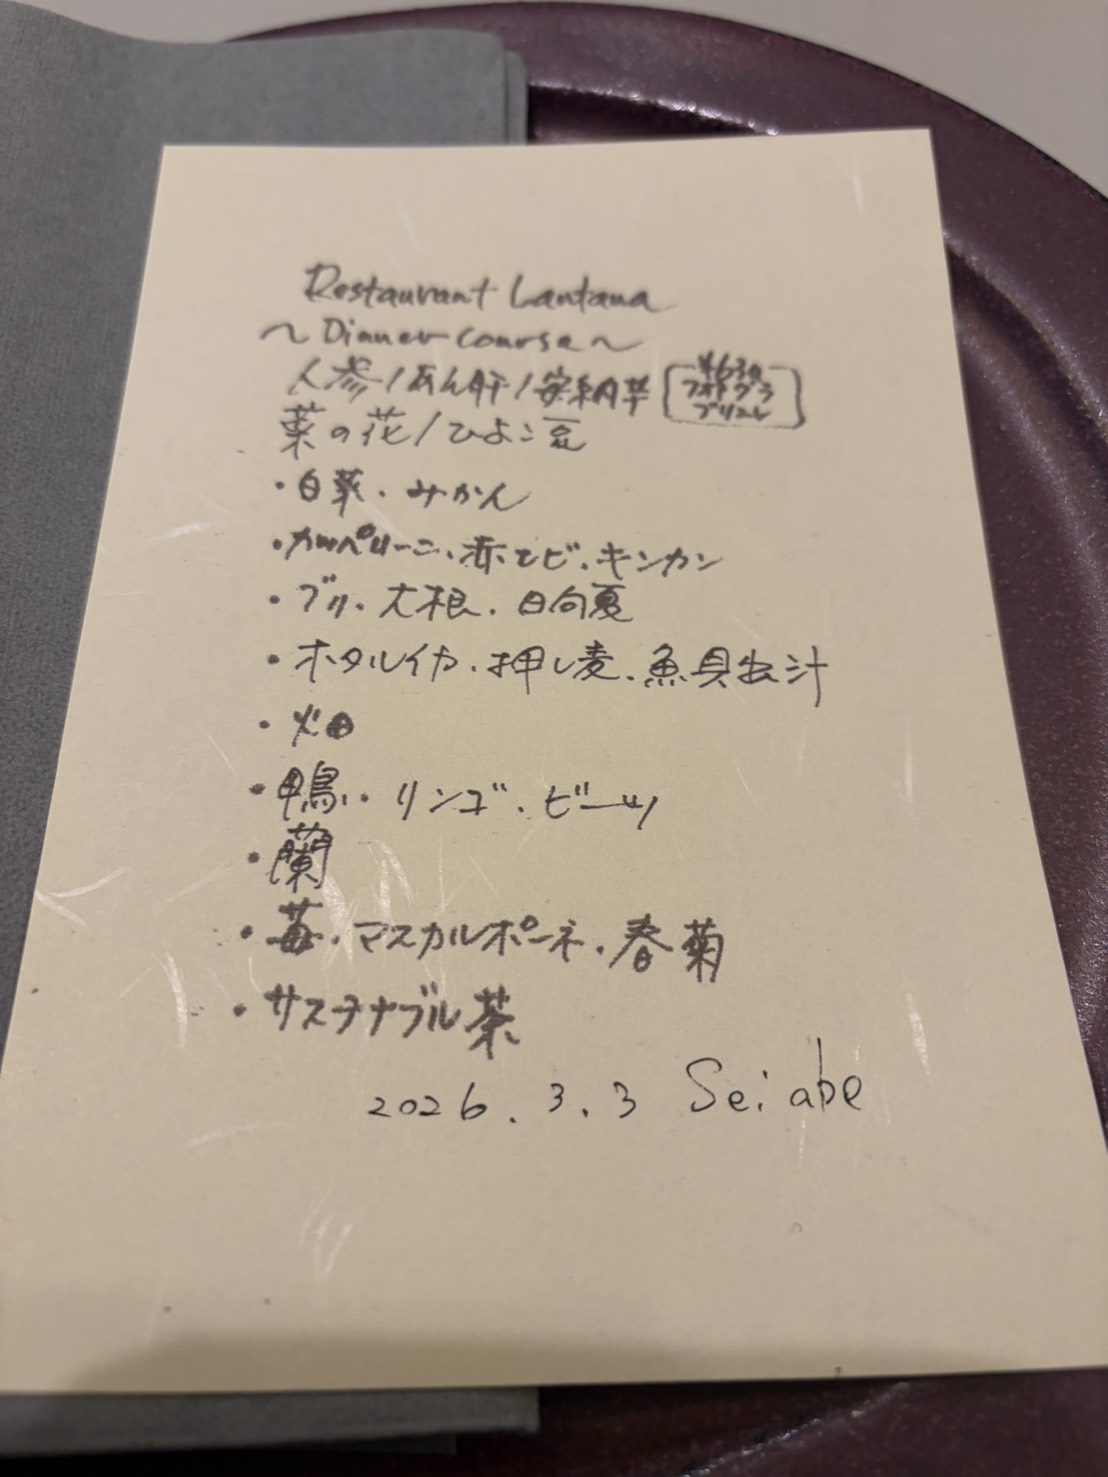 Restaurant Lantana
～Dinner course～
人参/あん肝/安納芋
フォトグラ
ブリュレ
菜の花/ひよこ豆
・白菜・みかん
・カッペリーニ・赤エビ・キンカン
・ブリ・大根・日向夏
・ホタルイカ・押し麦・魚貝出汁
・畑
・鴨・リンゴ・ビーツ
・蘭
・苺・マスカルポーネ・春菊
・サステナブル茶
2026.3.3 Sei abe